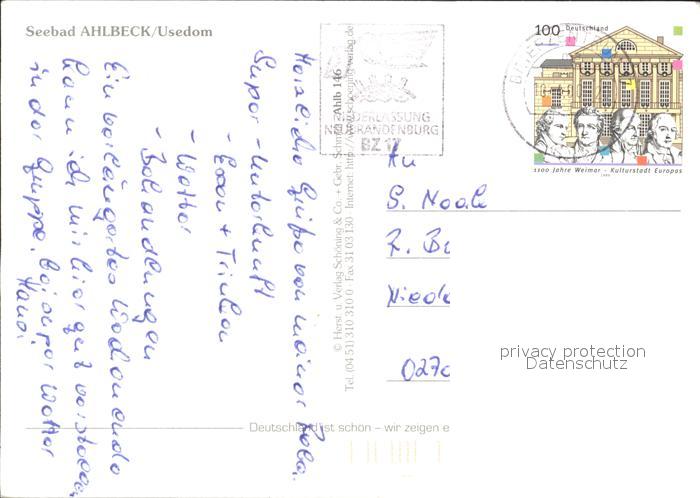 Seebad AHLBECK/Usedom
Herzliche Grüße von meiner
Super - Unterkunft
- Essen + Trinken
- Wetter
- Behandlungen
Ein verlängertes Wochenende
kann ich mir hier gut vorstellen,
in der Gruppe, bei super Wetter
© Herst. u. Verlag Schöning & Co. + Gebr. Schmidt
Ahlb 146
Tel. (04 51) 310 310 0 · Fax 31 03 130 · Internet: http://www.schoening-verlag.de
NIEDERLASSUNG
NEUBRANDENBURG
BZ 17
100 Deutschland
1100 Jahre Weimar - Kulturstadt Europas
1999
An
S. Noak
Z. Br
Niede
027
privacy protection
Datenschutz
Deutschland ist schön – wir zeigen e